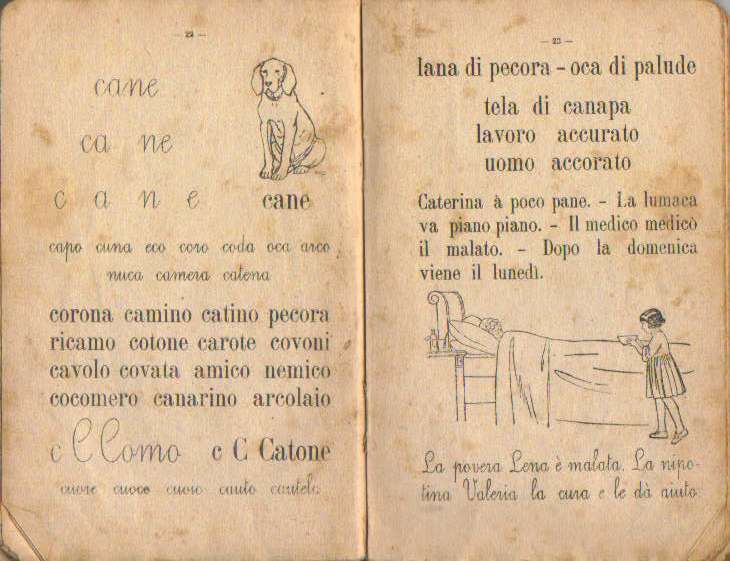 — 22 —
cane
ca ne
c a n e cane
capo cuna eco coro coda oca arco
nuca camera catena
corona camino catino pecora
ricamo cotone carote covoni
cavolo covata amico nemico
cocomero canarino arcolaio
c C Como c C Catone
cuore cuoco cuoio cauto cautela
— 23 —
lana di pecora – oca di palude
tela di canapa
lavoro accurato
uomo accorato
Caterina à poco pane. – La lumaca
va piano piano. – Il medico medicò
il malato. – Dopo la domenica
viene il lunedì.
La povera Lena è malata. La nipo-
tina Valeria la cura e le dà aiuto.